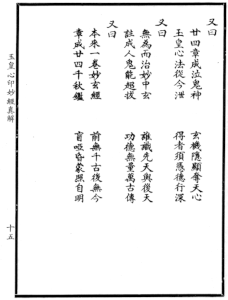 又曰
廿四章成泣鬼神
玄機隱顯奪天心
玉皇心法從今泄
得者須憑德行深
又曰
無為而治妙中玄
誰識先天與後天
註成人鬼能超拔
功德無量萬古傳
又曰
本來一卷妙玄經
前無千古後無今
章成廿四千秋鑑
盲啞昏蒙照自明
玉皇心印妙經真解
十五